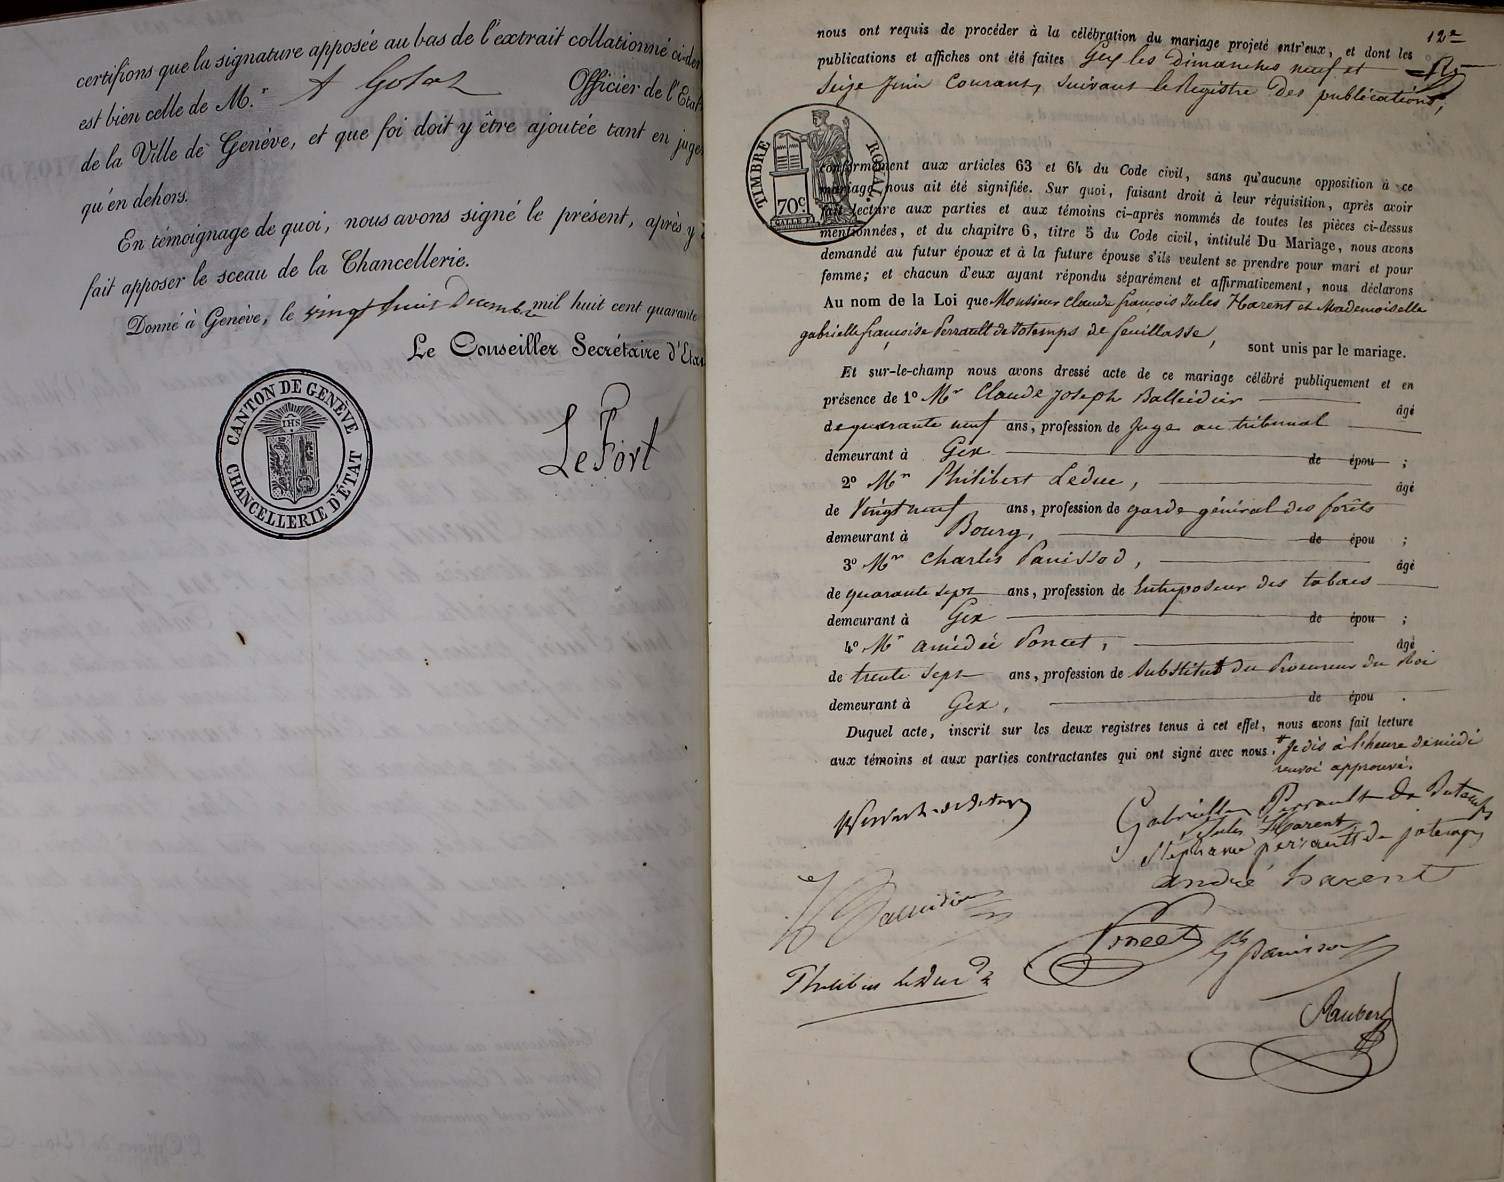 certifions que la signature apposée au bas de l'extrait collationné ci-des
est bien celle de M.r A Golaz Officier de l'Etat
de la Ville de Genève, et que foi doit y être ajoutée tant en juge
qu'en dehors.
En témoignage de quoi, nous avons signé le présent, après y
fait apposer le sceau de la Chancellerie.
Donné à Genève, le vingt huit Décembre mil huit cent quarante
Le Conseiller Secrétaire d'Eta
CANTON DE GENÈVE
IHS
CHANCELLERIE D'ÉTAT
LeFort
12e
nous ont requis de procéder à la célébration du mariage projeté entr'eux, et dont les
publications et affiches ont été faites Gex les dimanches neuf et
Seize Juin courant, suivant le Registre des publications,
TIMBRE ROYAL.
70c
conformément aux articles 63 et 64 du Code civil, sans qu'aucune opposition à ce
mariage nous ait été signifiée. Sur quoi, faisant droit à leur réquisition, après avoir
fait lecture aux parties et aux témoins ci-après nommés de toutes les pièces ci-dessus
mentionnées, et du chapitre 6, titre 5 du Code civil, intitulé Du Mariage, nous avons
demandé au futur époux et à la future épouse s'ils veulent se prendre pour mari et pour
femme; et chacun d'eux ayant répondu séparément et affirmativement, nous déclarons
Au nom de la Loi que Monsieur Claude françois Jules Harent et Mademoiselle
gabrielle françoise Perrault de Jotemps de feuillasse,
sont unis par le mariage.
Et sur-le-champ nous avons dressé acte de ce mariage célébré publiquement et en
présence de 1o Mr Claude Joseph Balleidier âgé
de quarante neuf ans, profession de Juge au tribunal
demeurant à Gex de épou ;
2o Mr Philibert Leduc, âgé
de Vingt neuf ans, profession de garde général des forêts
demeurant à Bourg, de épou ;
3o Mr Charles Panissod, âgé
de quarante sept ans, profession de Entreposeur des tabacs
demeurant à Gex de épou ;
4o Mr amédée Poncet, âgé
de trente sept ans, profession de Substitut du Procureur du Roi
demeurant à Gex, de épou .
Duquel acte, inscrit sur les deux registres tenus à cet effet, nous avons fait lecture
aux témoins et aux parties contractantes qui ont signé avec nous. * Je dis à l'heure de midi
renvoi approuvé.
Gabrielle Perrault de Jotemps
Jules Harent
Stéphanie perrault de jotemps
andré harent
Balleidier
Poncet
Ch Panissod
Philibert LeDuc